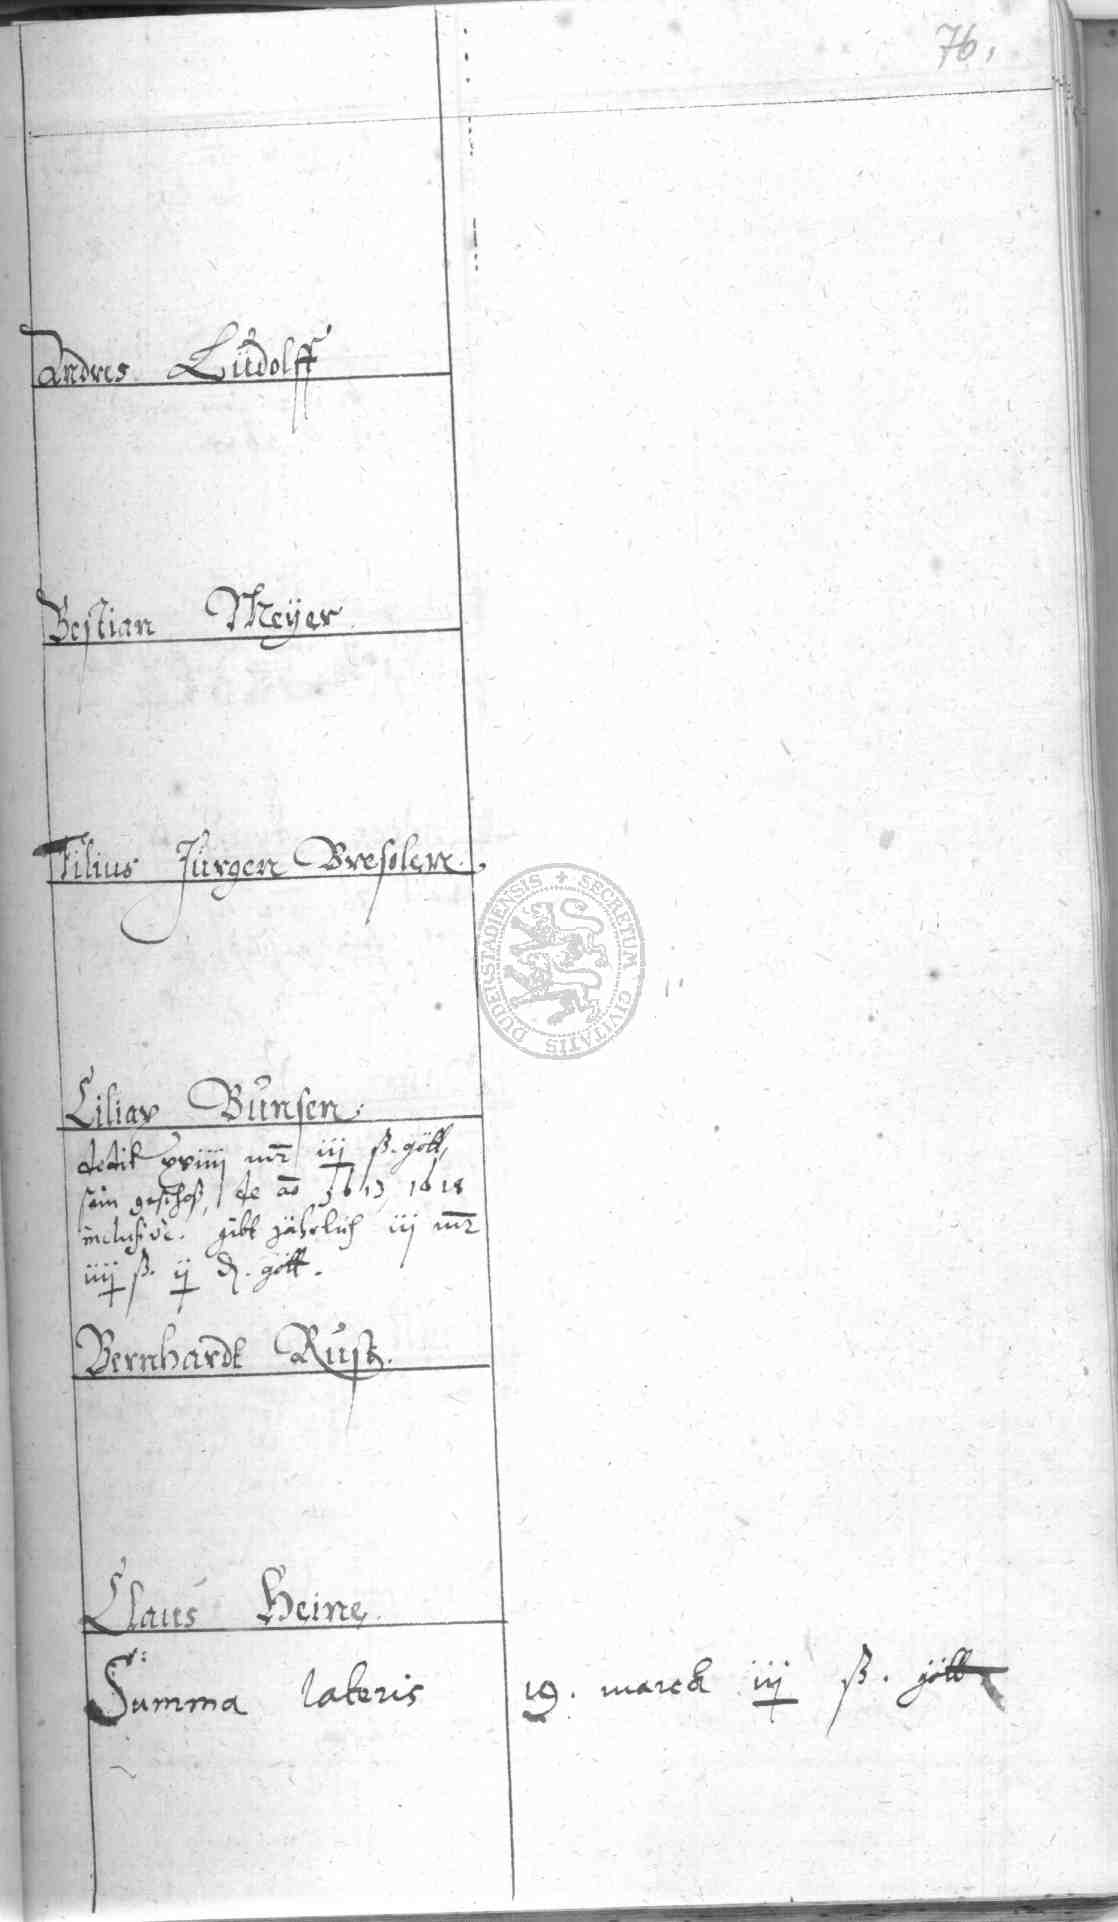 76.
Andres Lüdolff
Bestian Meÿer
Filius Jürgen Breselern.
DUDERSTADIENSIS + SECRETUM CIVITATIS
Ciliax Bunsen.
dedit xviiij mr iij ß. gött,
sein geschoß, de ao 1613, 1618
inclusivè. gibt jährlich iij mr
iiij ß. ij d. gött.
Bernhardt Rust.
Claus Heine.
Summa lateris 19. marck iij ß. gött